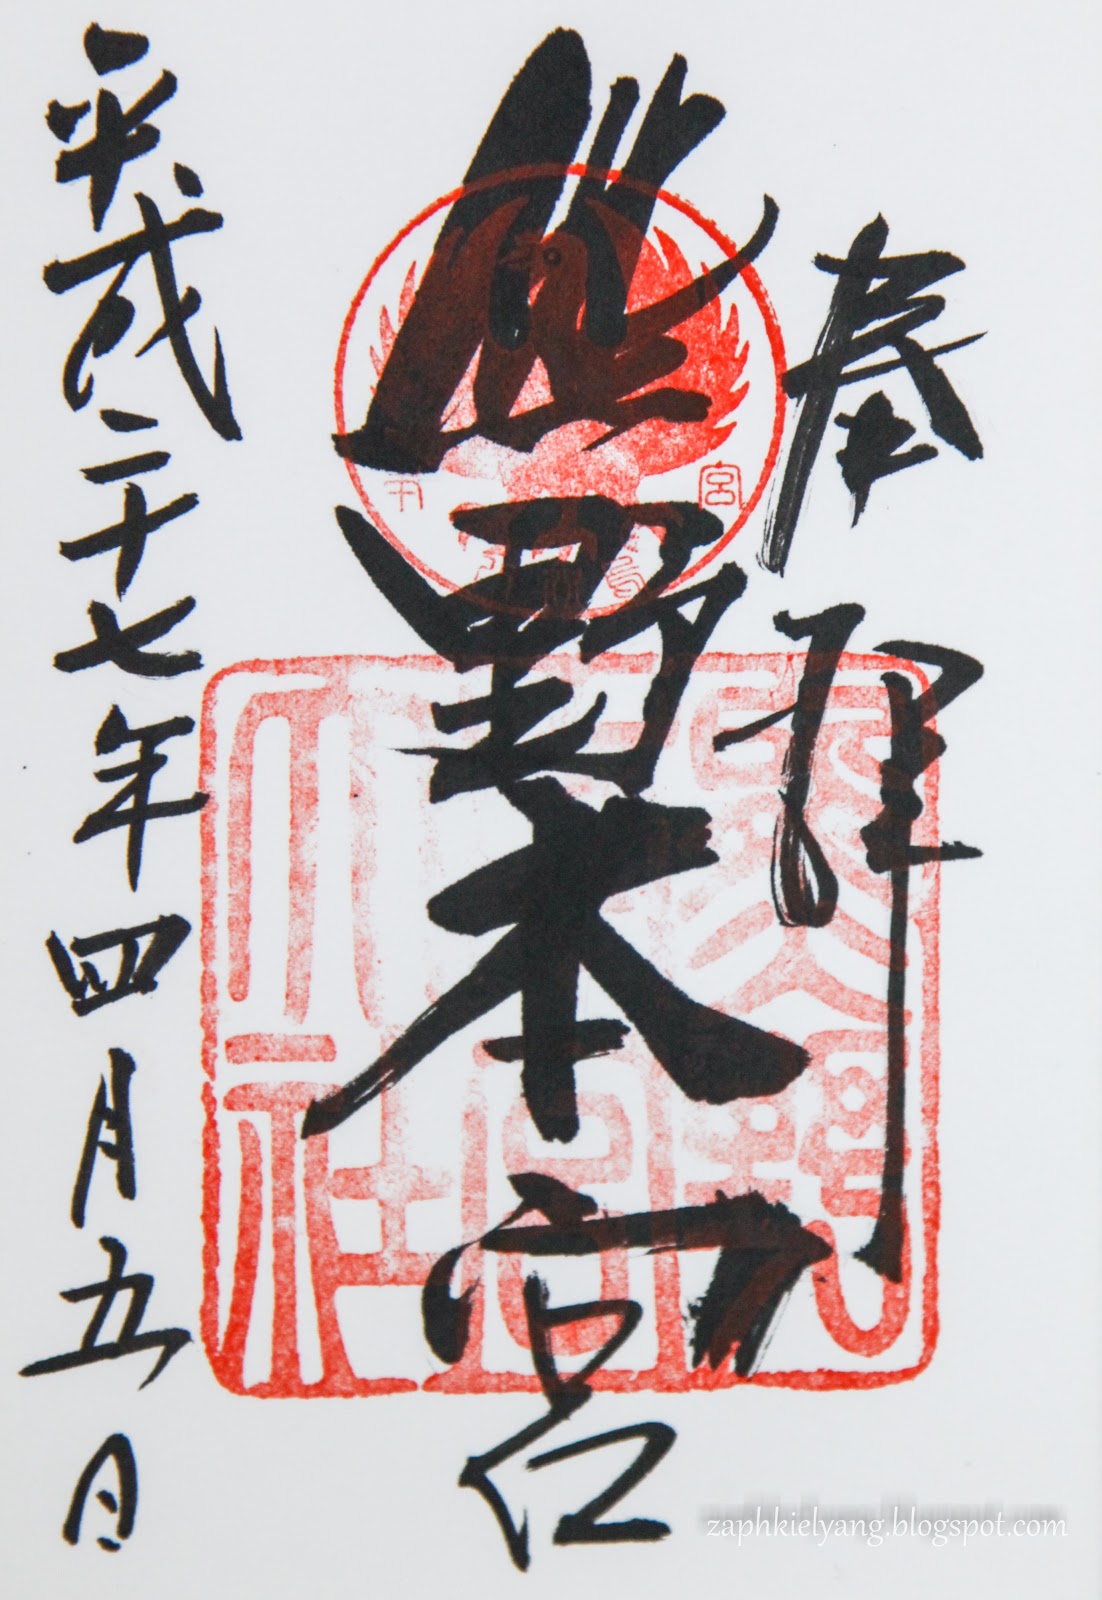 奉拝
熊野本宮
平成二十七年四月五日
zaphkielyang.blogspot.com